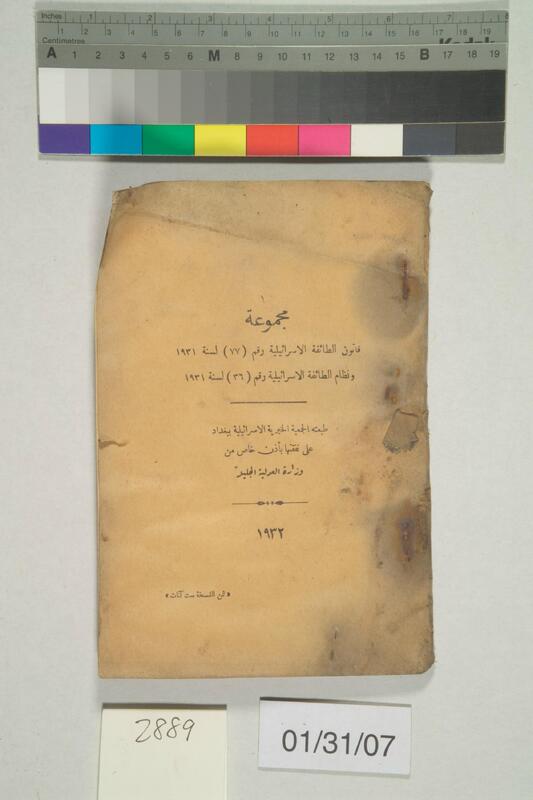 Inches 1 2 3 4 5 6 7 8
1 2 3 4 5 6 7 8 9 10 11 12 13 14 15 16 17 18 19
Centimetres
Kodak
A 1 2 3 4 5 6 M 8 9 10 11 12 13 14 15 B 17 18 19
مجموعة
قانون الطائفة الاسرائيلية رقم (٧٧) لسنة ١٩٣١
ونظام الطائفة الاسرائيلية رقم (٣٦) لسنة ١٩٣١
طبعته الجمعية الخيرية الاسرائيلية ببغداد
على نفقتها بأذن خاص من
وزارة العدلية الجليلة
١٩٣٢
«ثمن النسخة ست آنات»
2889
01/31/07